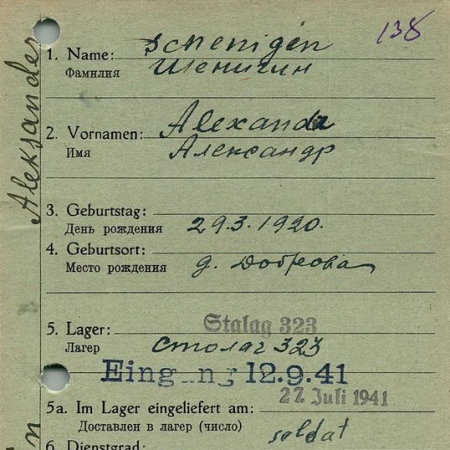 138
Aleksander
1. Name: Schenigin
Фамилия Шенигин
2. Vornamen: Alexander
Имя Александр
3. Geburtstag: 29.3.1920.
День рождения
4. Geburtsort: д. Доброва
Место рождения
5. Lager: Stalag 323
Лагер столаг 323
Eingang 12.9.41
27. Juli 1941
5a. Im Lager eingeliefert am:
Доставлен в лагер (число)
soldat
6. Dienstgrad: